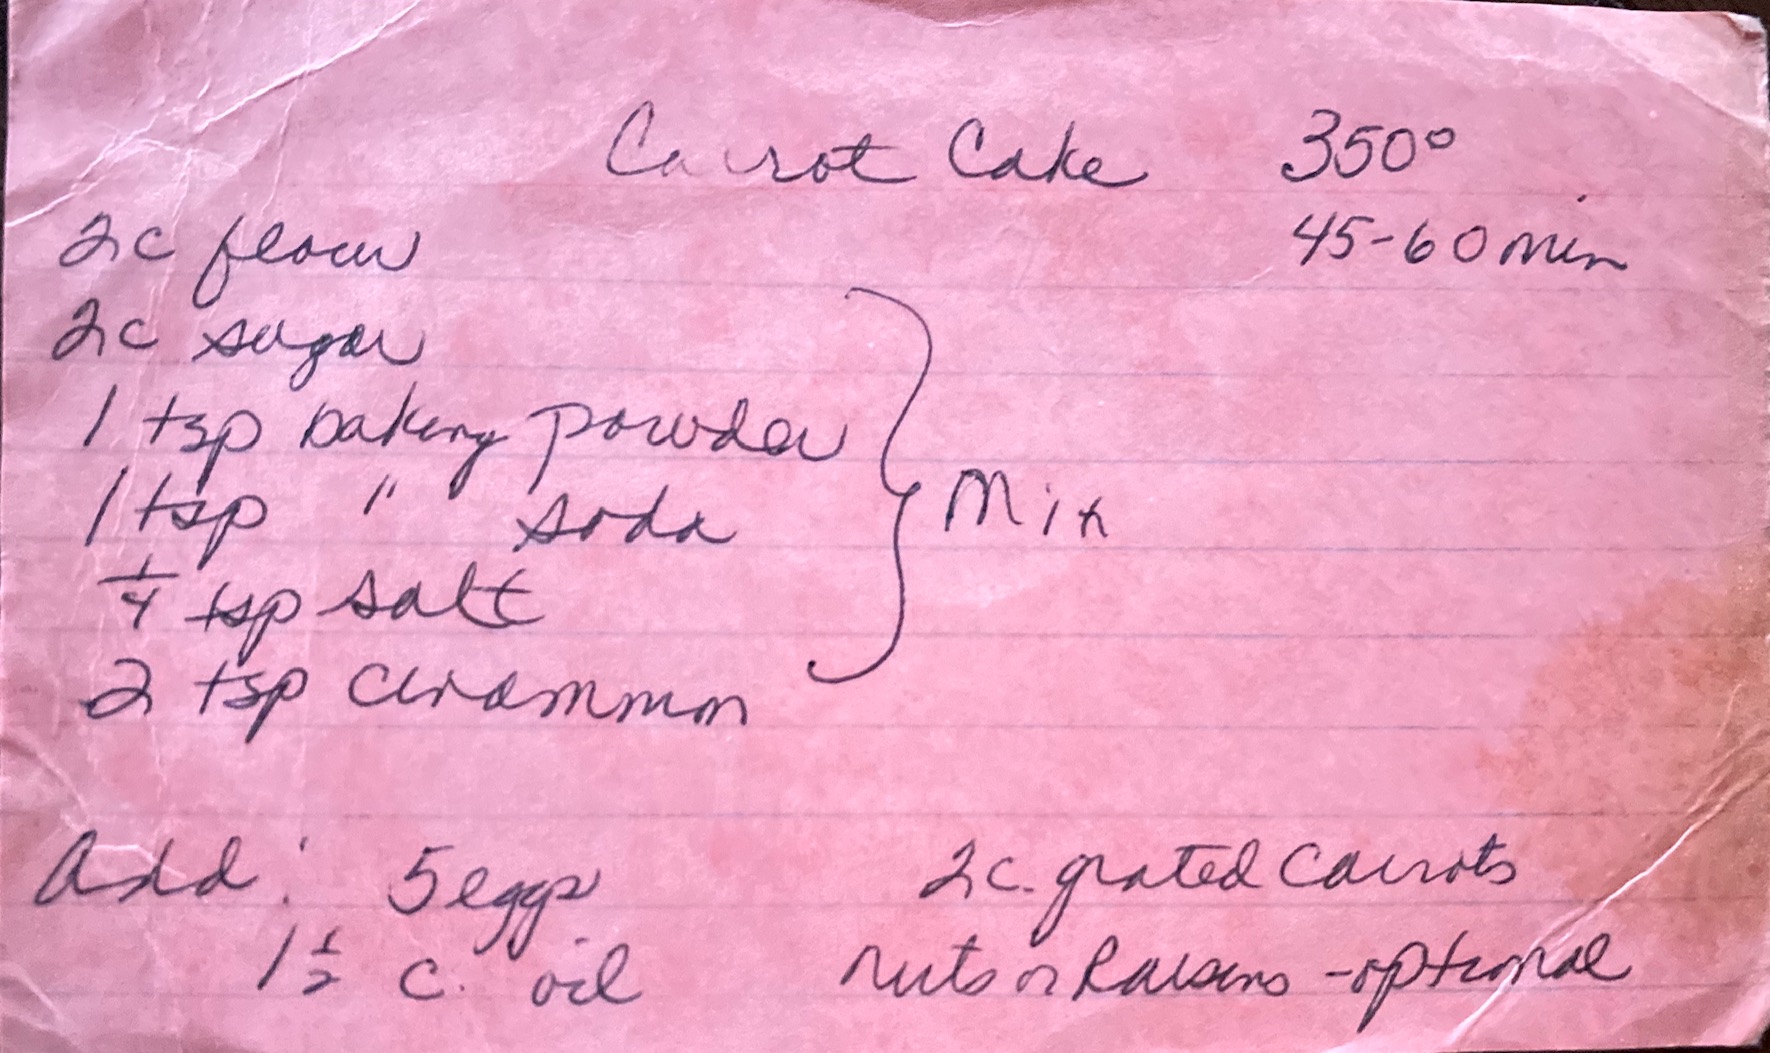 Carrot Cake 350°
45-60 min
2c flour
2c sugar
1 tsp baking powder
1 tsp " soda
1/4 tsp salt
2 tsp cinnammon
Mix
Add: 5 eggs
1 1/2 c. oil
2c. grated carrots
nuts or Raisins - optional